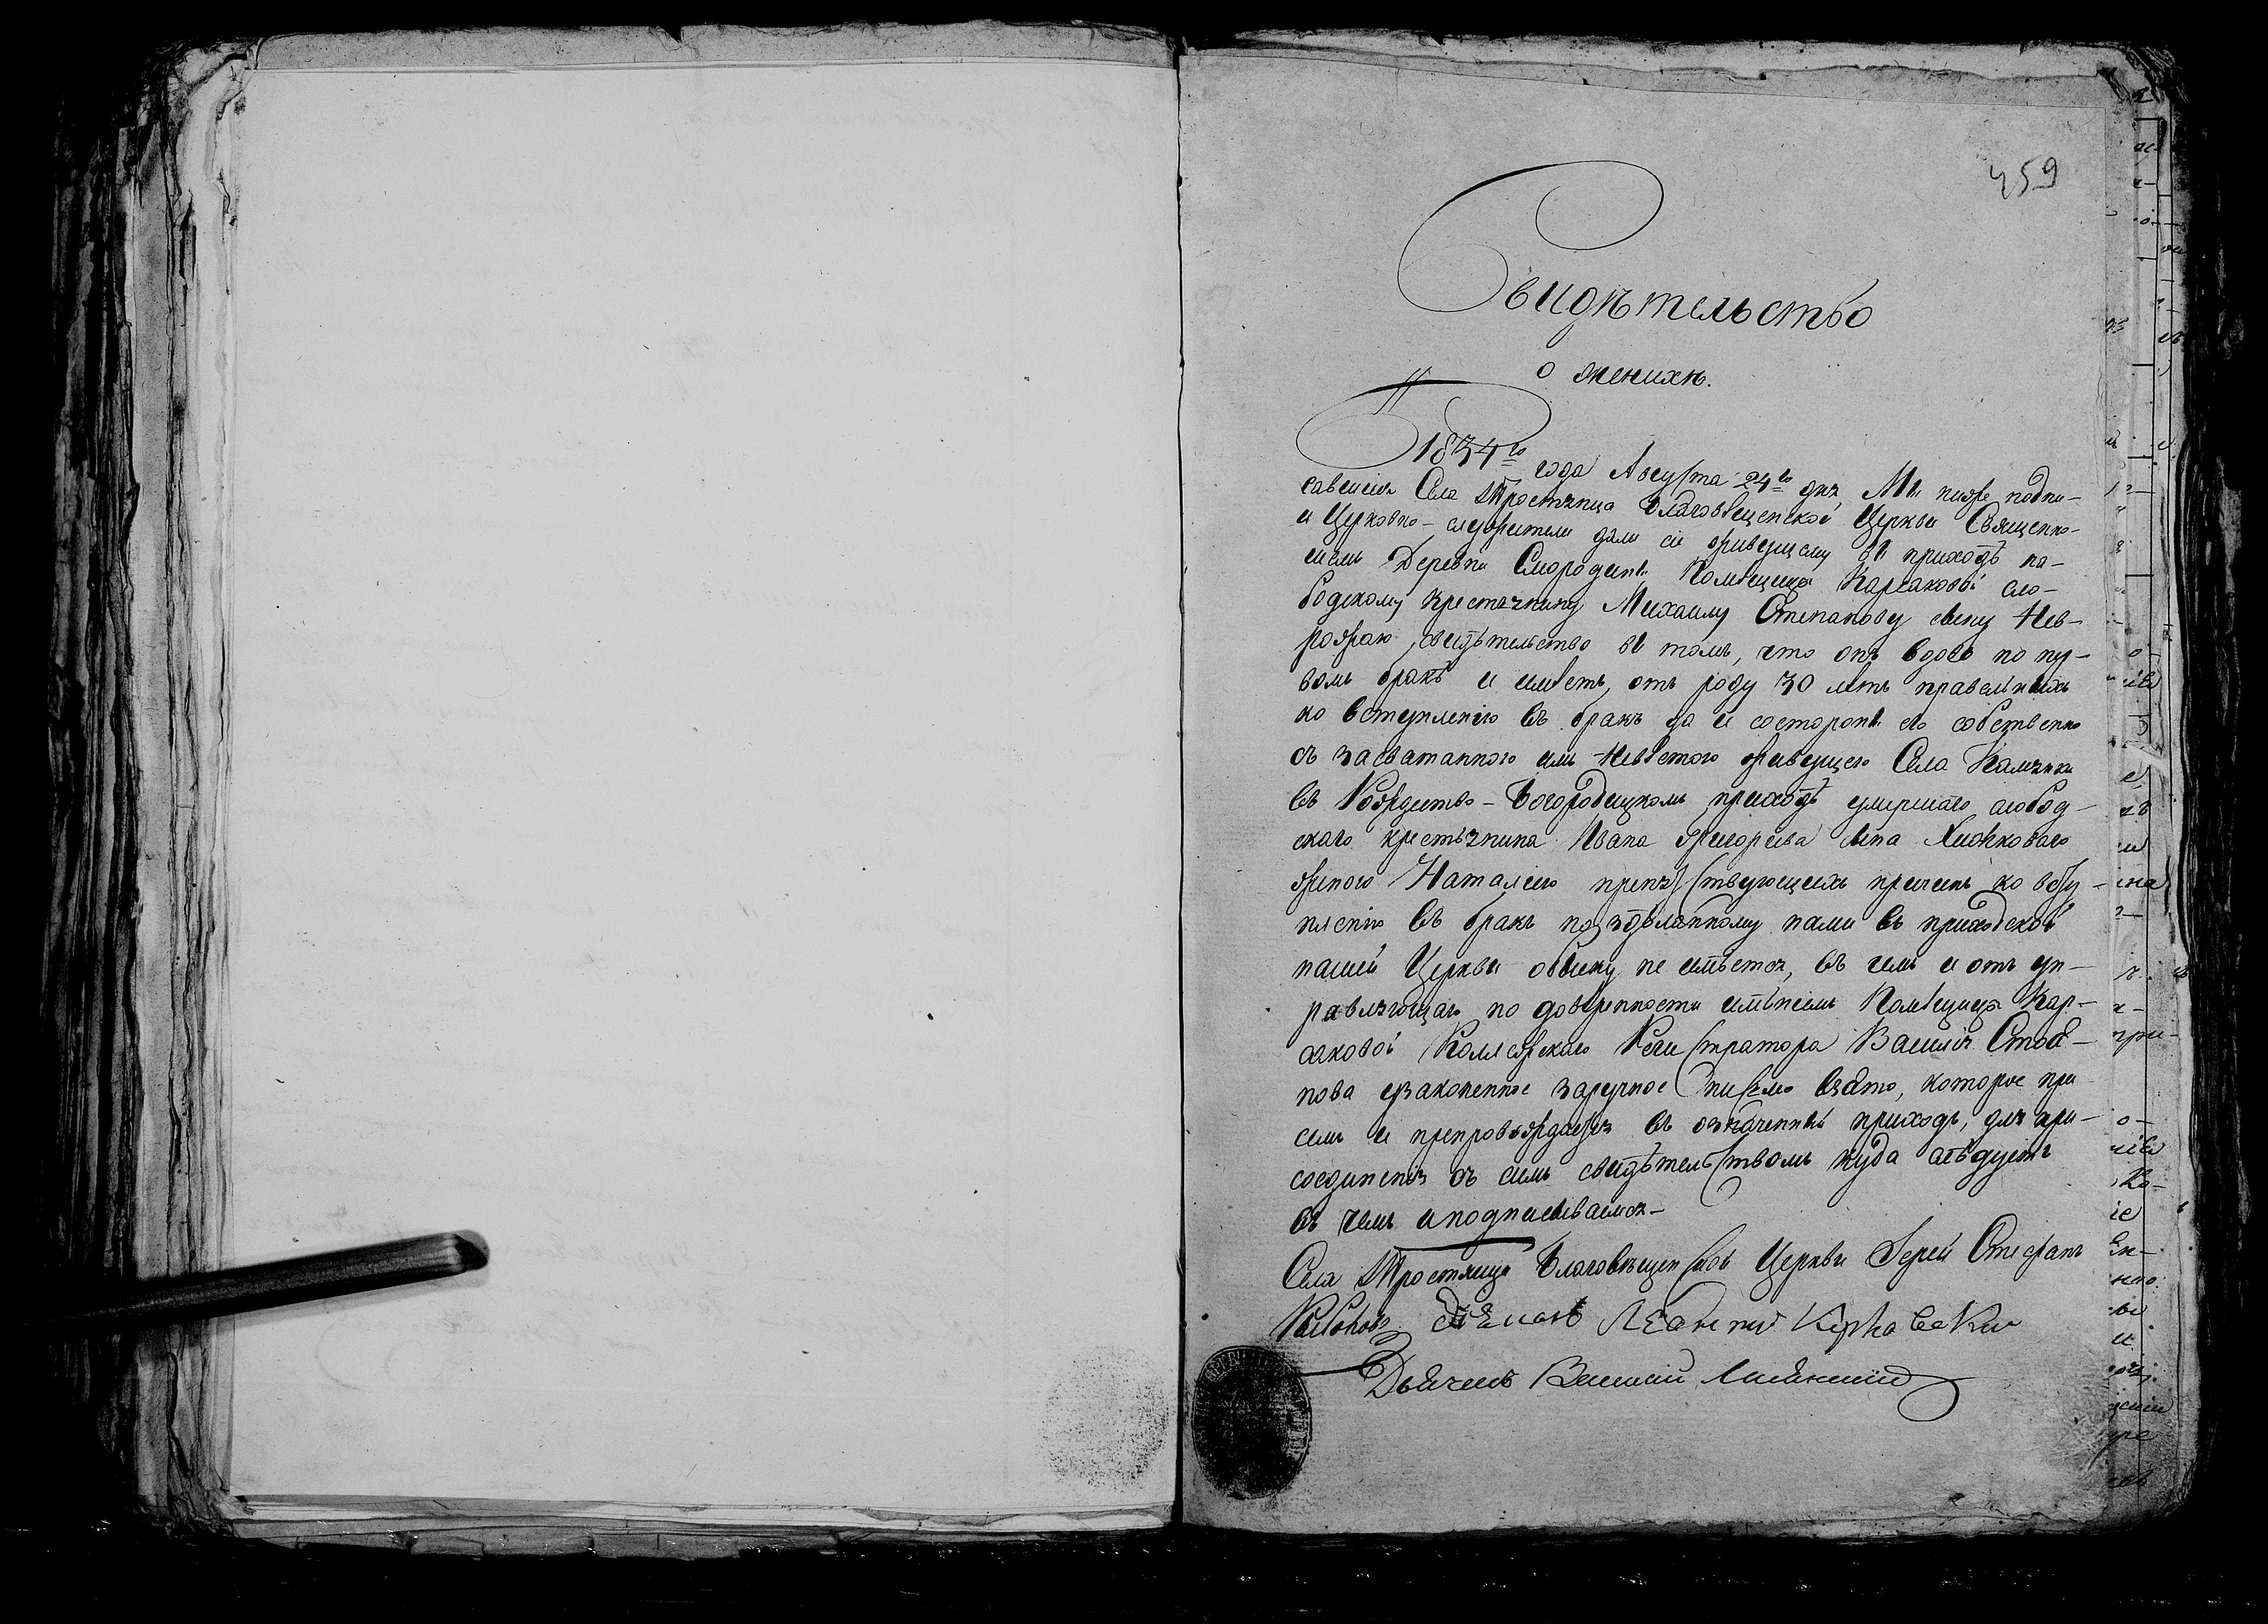 459
Свидѣтельство
о женихѣ.
1834го года Августа 24го дня Мы ниже подпи-
савшіися Села Тростянца Благовѣщенской Церкви Священно-
и Церковно-служители дали сіе живущему въ приходѣ на-
шемъ Деревни Смородины Помѣщицы Карсаковой сло-
бодскому крестьянину Михаилу Степанову сыну Нев-
рожаю свидѣтельство въ томъ, что онъ вдовъ по пер-
вомъ бракѣ и имѣетъ отъ роду 30 лѣтъ правильныхъ
ко вступленію въ бракъ да и состороны его собственно
съ засватанною имъ невѣстою живущею Села Камянки
въ Рождество-Богородицкомъ приходѣ умершаго слобод-
скаго крестьянина Ивана Григорьева сына
женою Наталіею препятствующихъ причинъ ко всту-
пленію въ бракъ по здѣланному нами въ приходской
нашей Церкви обыску не имѣется, въ чемъ и отъ уп-
равляющаго по довѣренности имѣніемъ Помѣщицы Кар-
саковой Коллежскаго Регистратора Василія
узаконенное заручное письмо взято, которое при
семъ и препровождается въ означенный приходъ, для при-
соединенія съ симъ свидѣтельствомъ куда слѣдуетъ
въ чемъ и подписываемся-
Села Тростянца Благовѣщенской Церкви Іерей Стефанъ
Діаконъ
Дьячекъ Василій